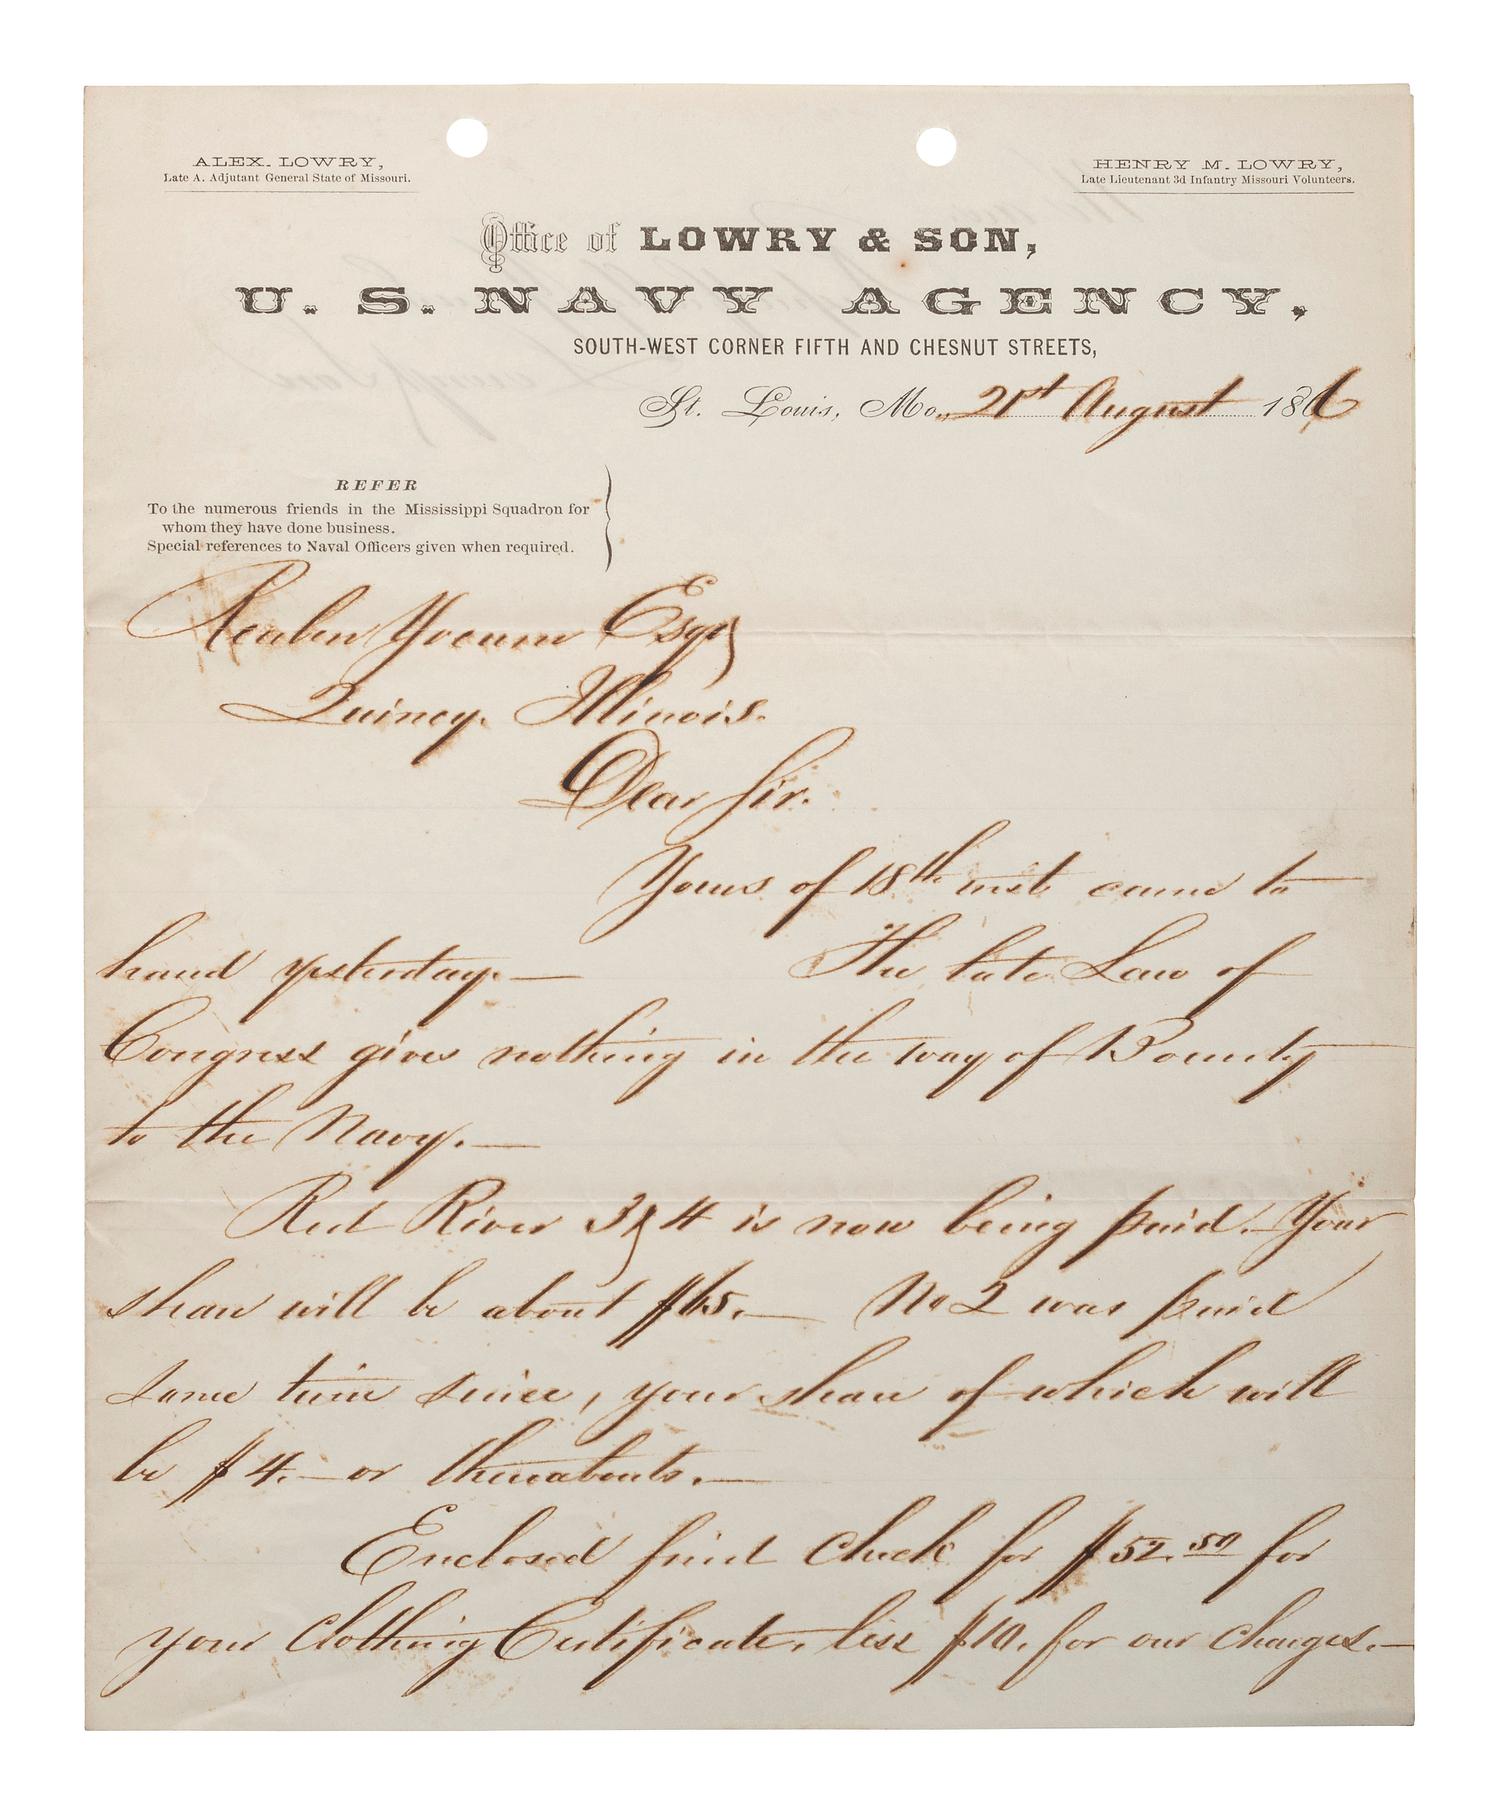 ALEX. LOWRY,
Late A. Adjutant General State of Missouri.
HENRY M. LOWRY,
Late Lieutenant 3d Infantry Missouri Volunteers.
Office of LOWRY & SON,
U. S. NAVY AGENCY,
SOUTH-WEST CORNER FIFTH AND CHESNUT STREETS,
St. Louis, Mo., 21st August 1866
REFER
To the numerous friends in the Mississippi Squadron for
whom they have done business.
Special references to Naval Officers given when required.
Reuben Yocum Esqr
Quincy. Illinois.
Dear Sir.
Yours of 18th inst came to
hand yesterday.— The late Law of
Congress gives nothing in the way of Bounty
to the Navy.—
Red River 3 & 4 is now being paid. Your
share will be about $65.— No 2 was paid
some time since, your share of which will
be $4.— or thereabouts.—
Enclosed find Check for $52.50 for
your Clothing Certificate, less $10. for our charges.—